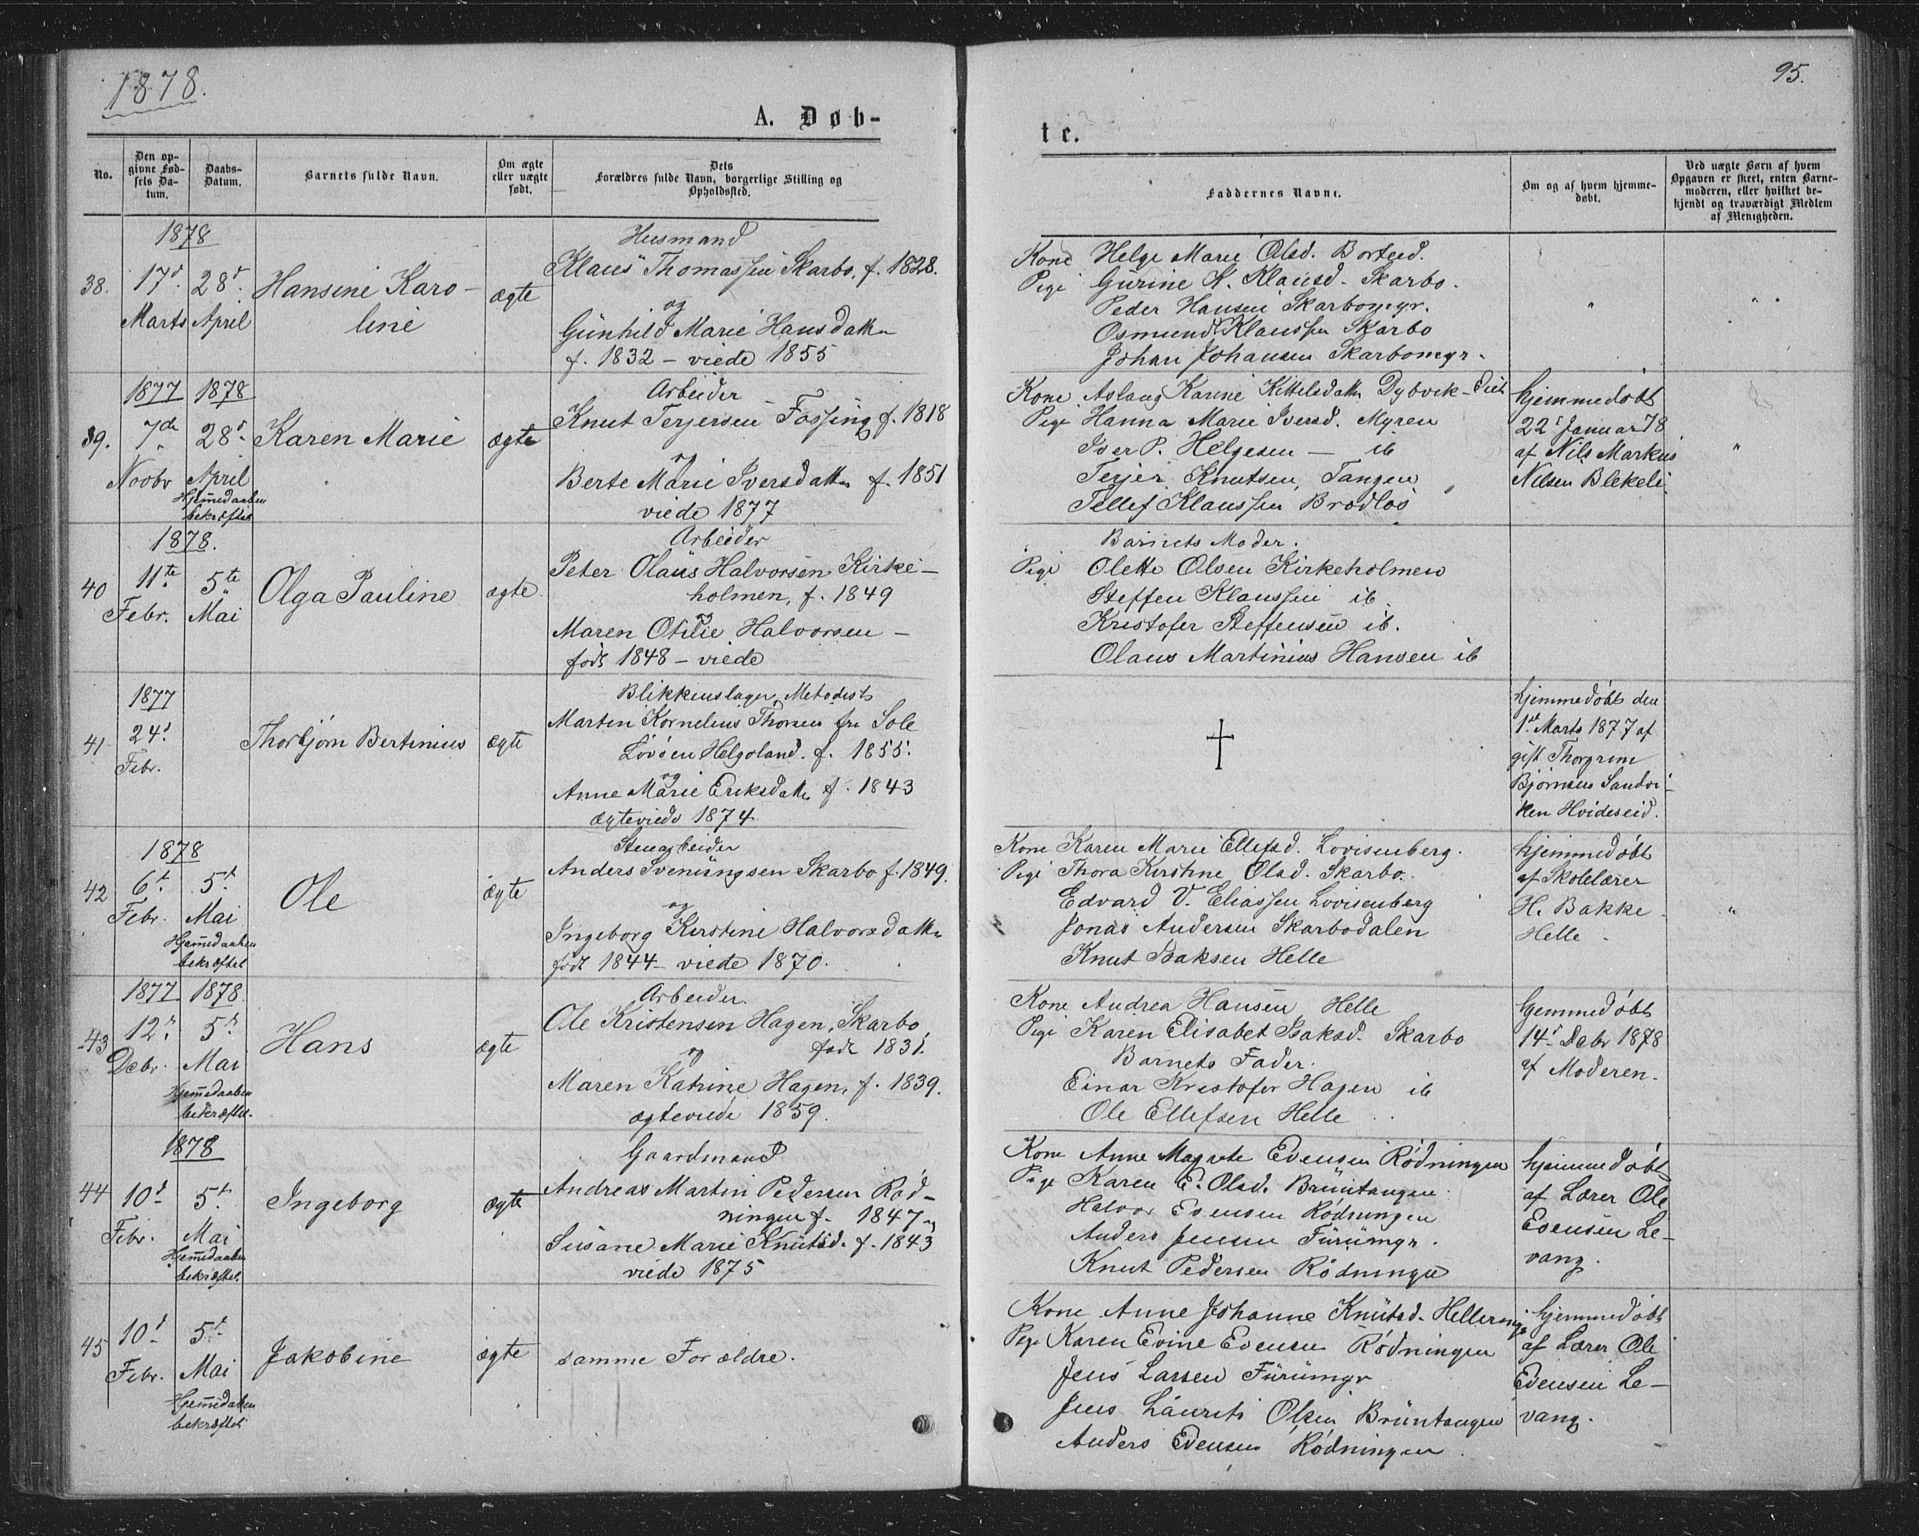 1878.
95.
A. Døb-
te.
No.
Den op-
givne Fød-
sels Da-
tum.
Daabs-
Datum.
Barnets fulde Navn.
Om ægte
eller uægte
født.
Dets
Forældres fulde Navn, borgerlige Stilling og
Opholdssted.
Faddernes Navne.
Om og af hvem hjemme-
døbt.
Ved uægte Børn af hvem
Opgaven er skeet, enten Barne-
moderen, eller hvilket be-
kjendt og troværdigt Medlem
af Menigheden.
1878
38.
17d
Marts
28d.
April
Hansine Karo-
line
ægte
Husmand
Klaus Thomassen Skarbo, f. 1828.
og
Gunhild Marie Hansdatt.
f. 1832 - viede 1855
Kone Helge Marie Olsd. Borteid.
Pige Gurine A. Klausd. Skarbo.
Peder Hansen Skarbomyr.
Osmund Klaussen Skarbo
Johan Johansen Skarbomyr.
1877 1878
39.
7de
Novbr
28d
April
Hjemmedaaben
bekræftet
Karen Marie
ægte
Arbeider
Knut Terjersen Fossing f. 1818
og
Berte Marie Iversdatt. f. 1851
viede 1877
Kone Aslaug Karine Kittelsdatt. Dybvik-Eiet
Pige Hanna Marie Iversd. Myren
Iver P. Helgesen - ib
Terjer Knutsen, Tangen
Tellef Klaussen Brødløs
hjemmedøbt
22d Januar 78
af Nils Markus
Nilsen Blekeli
1878.
40
11te
Febr.
5te
Mai
Olga Pauline
ægte.
Arbeider
Peter Olaus Halvorsen Kirke-
holmen, f. 1849
og
Maren Otilie Halvorsen -
født 1848 - viede
Barnets Moder.
Pige Olette Olsen Kirkeholmen
Steffen Klaussen ib
Kristofer Steffensen ib.
Olaus Martinius Hansen ib
1877
41
24d
Febr.
Thorbjørn Bertinius
ægte
Blikkenslager, Metodist
Martin Kornelius Thorsen fra Sole
Løvøen Helgoland. f. 1855.
og
Anne Marie Eriksdatt. f. 1843
ægteviede 1874
†
hjemmedøbt den
1ste Marts 1877 af
gift Thorgrim
Bjørnsen Sandvi-
ken Hvideseid.
1878
42
6t
Febr.
5t
Mai
Hjemmedaaben
bekræftet
Ole
ægte
Stenarbeider
Anders Svenungsen Skarbo f. 1849.
og
Ingeborg Kirstine Halvorsdatt.
født 1844 - viede 1870.
Kone Karen Marie Ellefsd. Lovisenberg.
Pige Thora Kirstine Olsd. Skarbo.
Edvard V. Eliassen Lovisenberg
Jonas Andersen Skarbodalen
Knut Isaksen Helle
hjemmedøbt
af Skolelærer
H. Bakke
Helle -
1877 1878
43
12t
Debr.
5t
Mai
Hjemmedaaben
bekræftet.
Hans
ægte
Arbeider
Ole Kristensen Hagen, Skarbo
født 1831.
og
Maren Katrine Hagen, f. 1839.
ægteviede 1859.
Kone Andrea Hansen Helle
Pige Karen Elisabet Isaksd. Skarbo
Barnets Fader.
Einar Kristofer Hagen ib
Ole Ellefsen Helle
hjemmedøbt
14d Debr 1878
af Moderen.
1878
44
10d
Febr.
5t
Mai
Hjemmedaaben
bekræftet
Ingeborg
ægte
Gaardmand
Andreas Martin Pedersen Rød-
ningen f. 1847 og
Susane Marie Knutsd. f. 1843
viede 1875
Kone Anne Magrete Evensen Rødningen
Pige Karen E. Olsd. Bruntangen
Halvor Evensen Rødningen
Anders Jensen Furumyr.
Knut Pedersen Rødningen
hjemmedøbt
af Lærer Ole
Evensen Le-
vang.
45
10d
Febr.
5t
Mai
Hjemmedaaben
bekræftet
Jakobine
ægte
samme Forældre.
Kone Anne Johanne Knutsd. Helleringe
Pige Karen Evine Evensen Rødningen
Jens Larsen Furumyr
Jens Laurits Olsen Bruntangen
Anders Evensen Rødningen
hjemmedøbt
af Lærer Ole
Evensen Le-
vang.